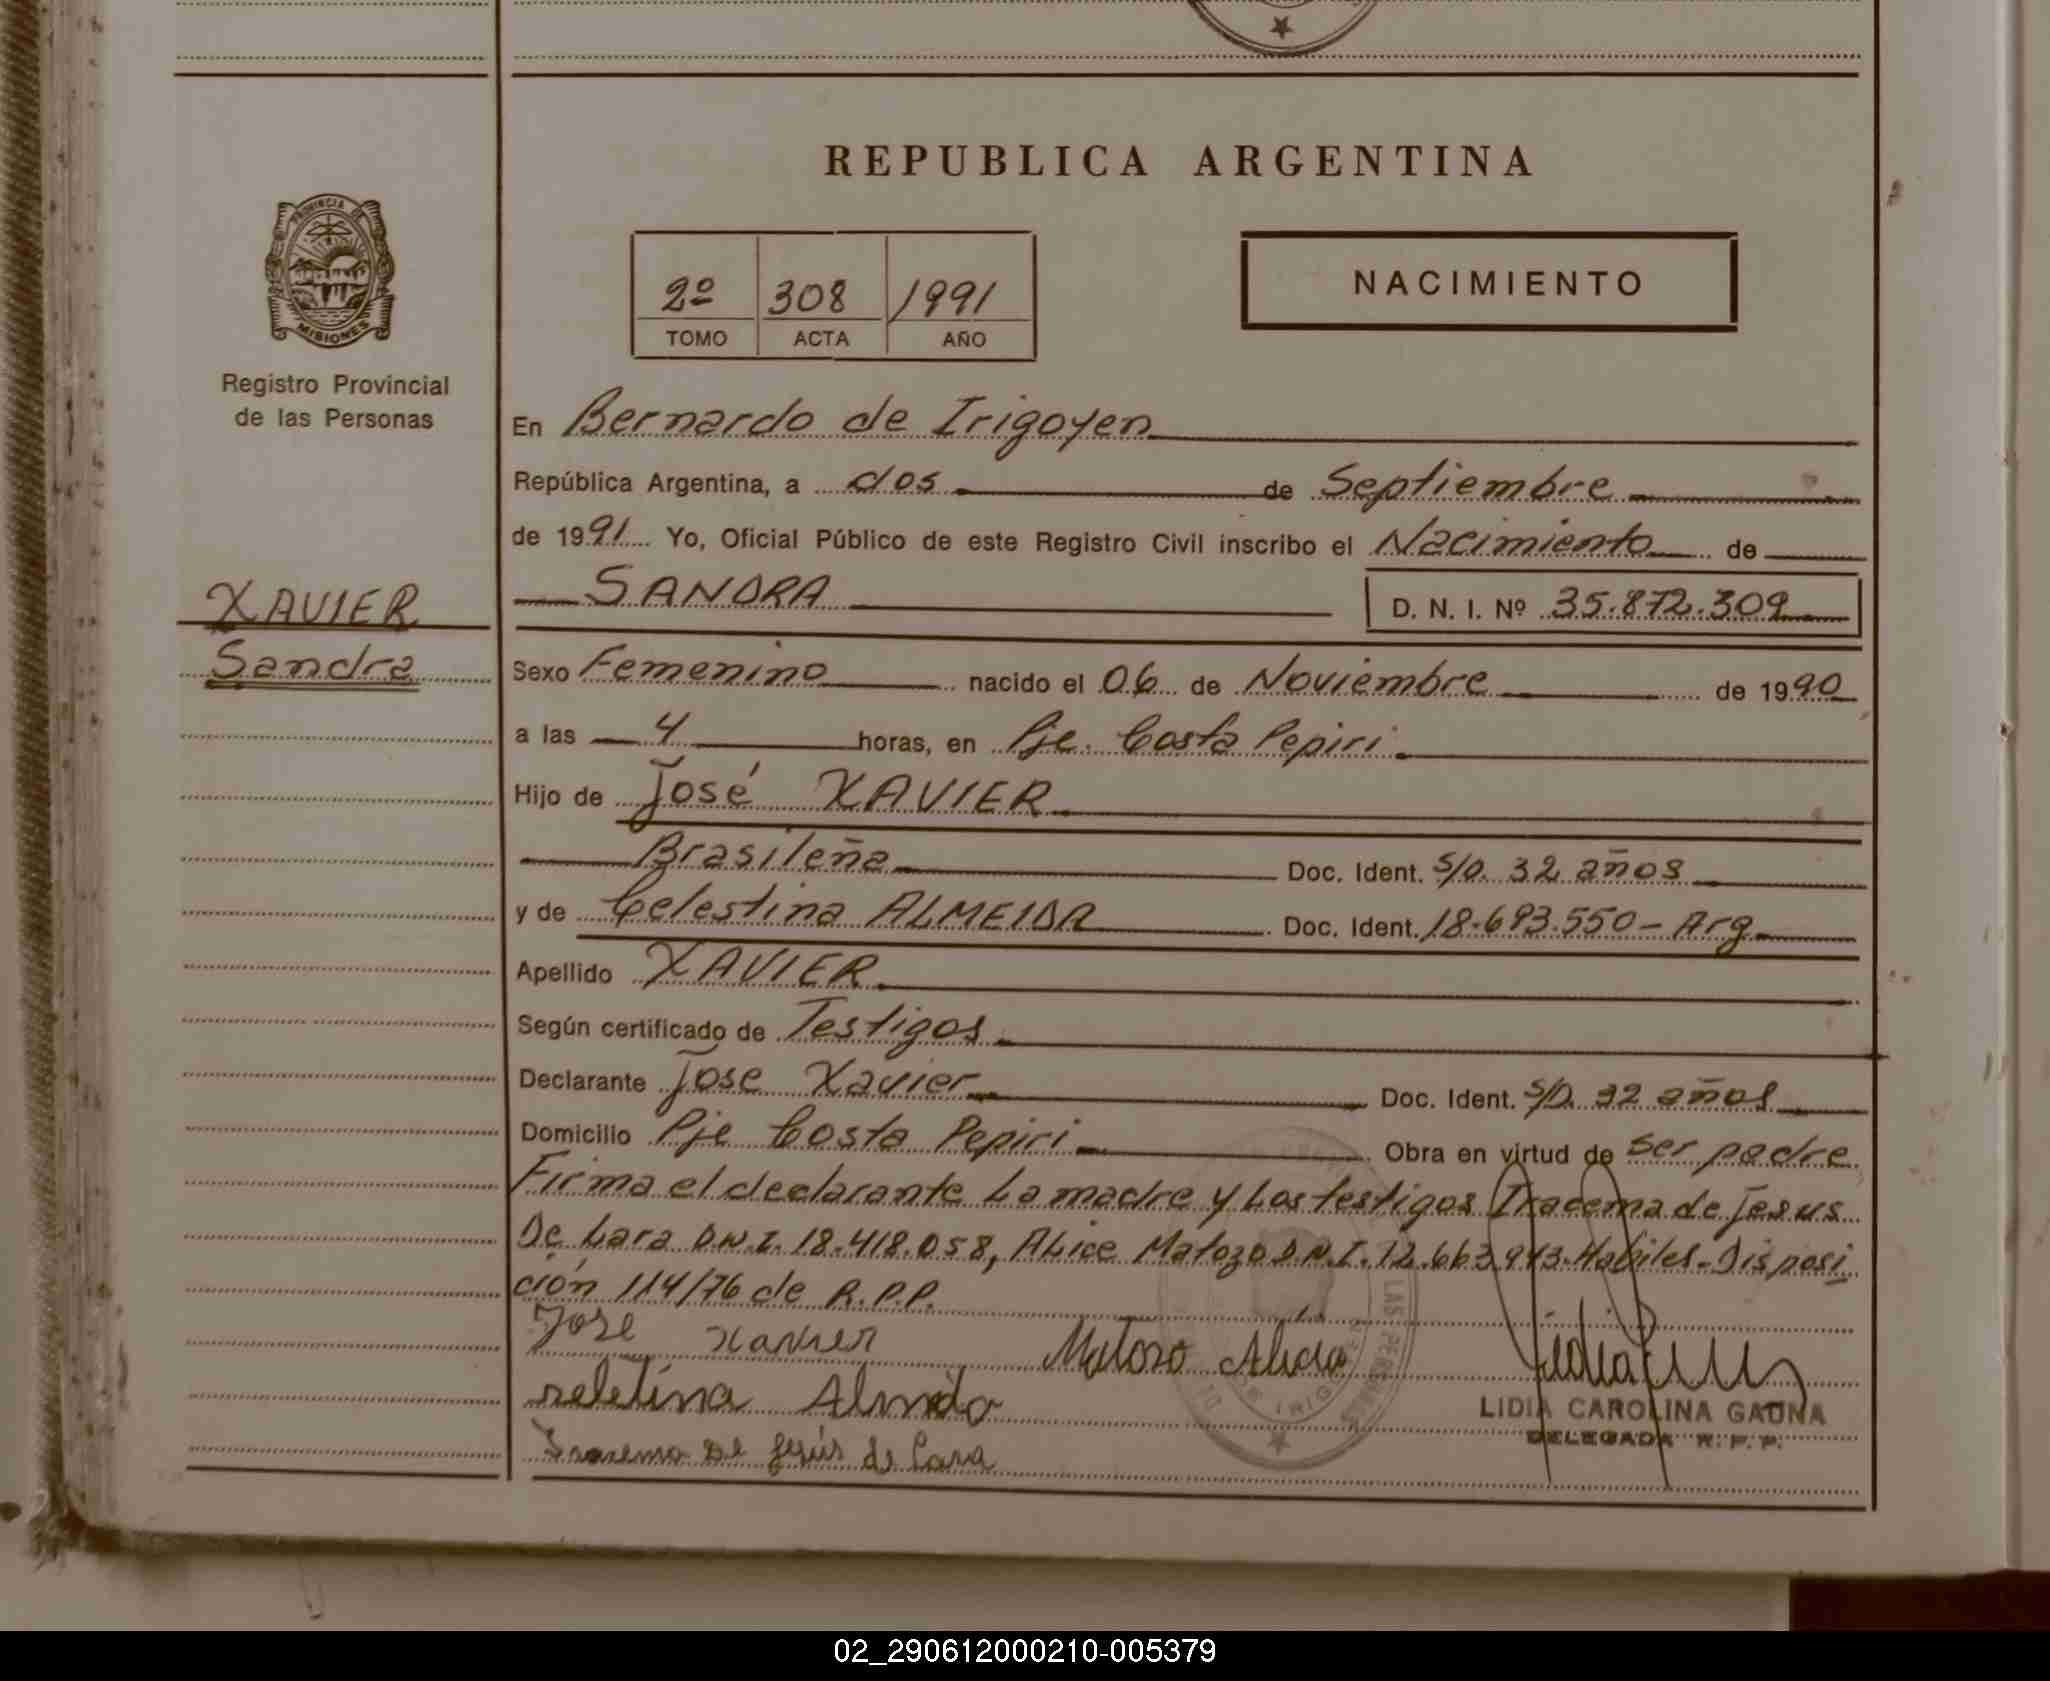 REPUBLICA ARGENTINA
PROVINCIA DE MISIONES
Registro Provincial
de las Personas
2º 308 1991
TOMO ACTA AÑO
NACIMIENTO
En Bernardo de Irigoyen
República Argentina, a dos de Septiembre
de 1991 Yo, Oficial Público de este Registro Civil inscribo el Nacimiento de
XAVIER
SANDRA D. N. I. Nº 35.872.309
Sandra
Sexo Femenino nacido el 06 de Noviembre de 1990
a las 4 horas, en Pje. Costa Pepiri
Hijo de José XAVIER
Brasileña Doc. Ident. S/D. 32 años
y de Celestina ALMEIDA Doc. Ident. 18.693.550 - Arg
Apellido XAVIER
Según certificado de Testigos
Declarante Jose Xavier Doc. Ident. S/D. 32 años
Domicilio Pje Costa Pepiri Obra en virtud de ser padre
Firma el declarante La madre y Los testigos Iracema de Jesus
De Lara D.N.I. 18.418.058, ALice Matozo D.N.I. 12.663.943. Habiles - Disposi
ción 114/76 de R.P.P.
José Xavier Matozo
Almida
LIDIA CAROLINA GAUNA
DELEGADA R. P. P.
de Jesús de Lara
02_290612000210-005379